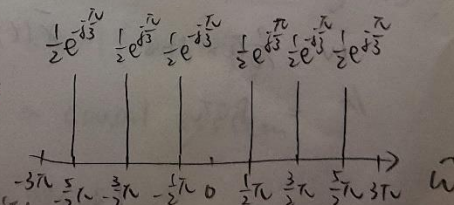 ½e^{-jπ/3} ½e^{jπ/3} ½e^{-jπ/3} ½e^{jπ/3} ½e^{-jπ/3} ½e^{jπ/3}
-3π -5/2π -3/2π -1/2π 0 1/2π 3/2π 5/2π 3π